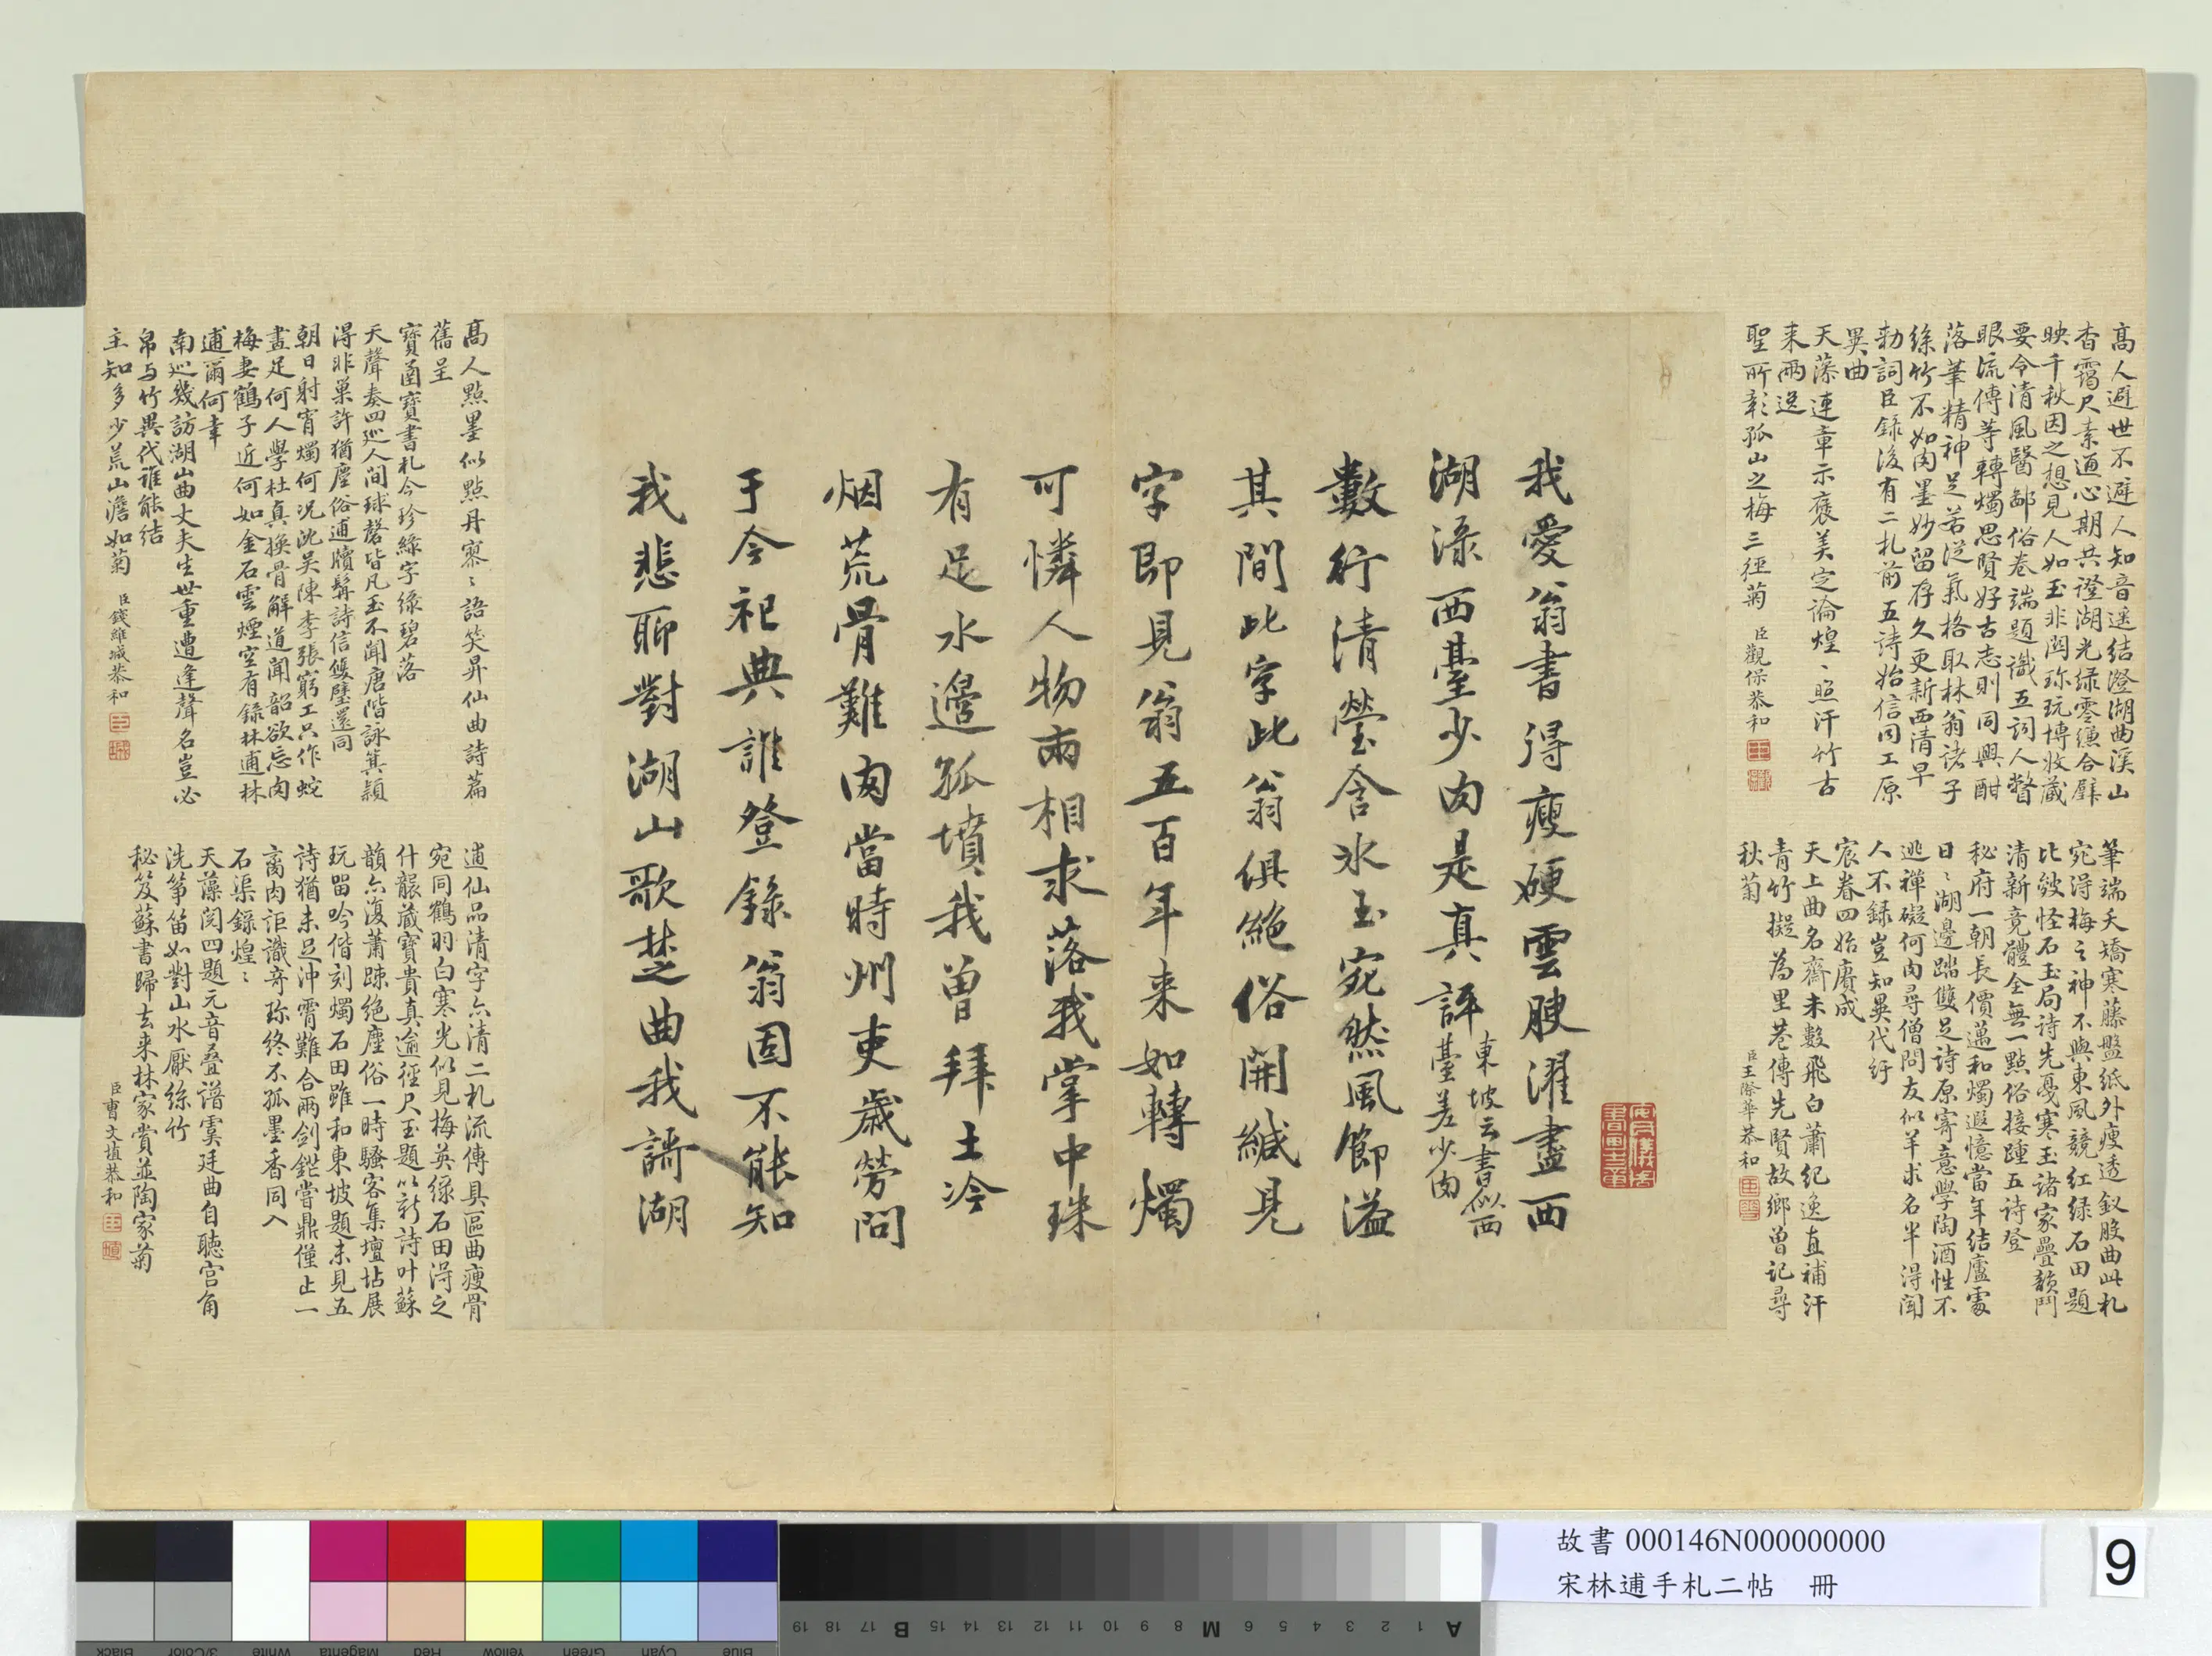 高人避世不避人知音遥結澄湖曲溪山
杳靄尺素通心期共證湖光緑零縑合璧
映千秋因之想見人如玉非關珎玩博收蔵
要令清風醫鄙俗卷端題識五詞人瞥
眼流傳等轉燭思賢好古志則同興酣
落筆精神足若從氣格取林翁諸子
絲竹不如肉墨妙留存久更新西清早
勅詞臣録後有二札前五詩始信同工原
異曲
天藻連章示褒美定論煌〻照汗竹古
来兩逸
聖所彰孤山之梅三徑菊 臣觀保恭和
筆端夭矯寒藤盤紙外瘦透釵股曲此札
宛得梅之神不與東風競紅緑石田題
比皴怪石玉局詩先戞寒玉諸家疊韻鬥
清新竟體全無一點俗接踵五詩登
秘府一朝長價邁和燭遐憶當年結廬處
日〻湖邊蹋雙足詩原寄意學陶酒性不
逃禪礙何肉尋僧問友似羊求名半得閒
人不録豈知異代紆
宸眷四始賡成
天上曲名齋未數飛白蕭紀逸直補汗
青竹擬為里巷傳先賢故鄉曾記尋
秋菊 臣王際華恭和
我愛翁書得瘦硬雲腴濯盡西
湖淥西臺少肉是真評東坡云書似西臺差少肉
數行清瑩含冰玉宛然風節溢
其間此字此翁俱絶俗開緘見
字即見翁五百年来如轉燭
可憐人物兩相求落我掌中珠
有足水邊孤墳我曾拜土冷
烟荒骨難肉當時州吏歲勞問
于今祀典誰登録翁固不能知
我悲聊對湖山歌楚曲我謌湖
高人點墨似點丹寥〻語笑昇仙曲詩篇
舊呈
寶圅寶書札今珍緑字緣碧落
天聲奏四巡人間球磬皆凡玉不聞唐階詠箕潁
得非巢許猶塵俗逋牘髯詩信雙璧還同
朝日射宵燭何況沈吴陳李張窮工只作蛇
畫足何人學杜真換骨解道聞韶欲忘肉
梅妻鶴子近何如金石雲煙空有録林逋林
逋爾何幸
南巡幾訪湖山曲丈夫生世重遭逢聲名豈必
帛与竹異代誰能結
主知多少荒山澹如菊 臣錢維城恭和
逋仙品清字亦清二札流傳具區曲瘦骨
宛同鶴羽白寒光似見梅英緑石田得之
什襲蔵寶貴真逾徑尺玉題以新詩叶蘇
韻亦復蕭踈絶塵俗一時騷客集壇坫展
玩留吟偕刻燭石田雖和東坡題未見五
詩猶未足沖霄難合兩劍鋩嘗鼎僅止一
臠肉詎識竒珎終不孤墨香同入
石渠録煌〻
天藻閲四題元音叠譜虞廷曲自聴宫角
洗筝笛如對山水厭絲竹
秘笈蘇書歸去来林家賞並陶家菊
臣曹文埴恭和
故書 000146N000000000
宋林逋手札二帖 冊
9
Black
3/Color
White
Magenta
Red
Yellow
Green
Cyan
Blue
A 1 2 3 4 5 6 M 8 9 10 11 12 13 14 15 B 17 18 19